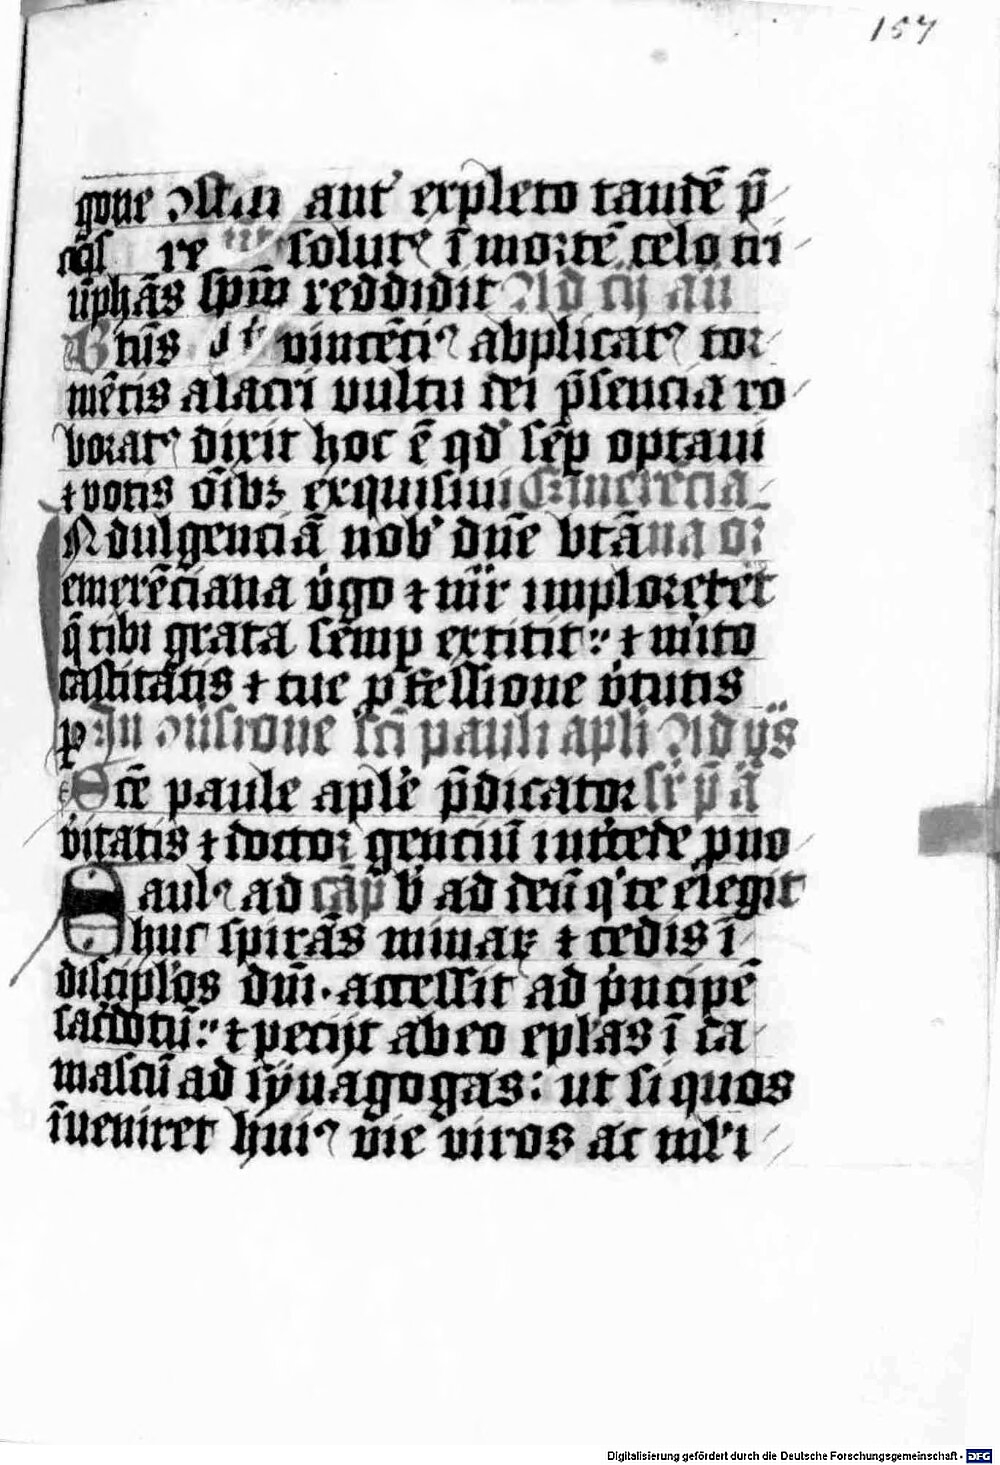 157
gone aut' expleto tandē p̄
solut᷒ ī mortē celo tri
ūphās sp̄m reddidit Ad
Btūs vincēti᷒ applicat᷒ tor
mētis alacri vultu dei p̄sencia ro
borat᷒ dixit hoc ē qd' sēp optaui
⁊ votis oībꝫ exquisiui
Indulgenciā nob' dn̄e btā na or
emerēciana v̾go ⁊ mr̄ imploret et
q̄ tibi grata semꝑ extitit ⁊ m̾ito
castitatis ⁊ tue ꝓfessione v̾tutis
In ꝯuersione sc̄i pauli apli Ad
Sc̄e paule aple p̄dicator
v̾itatis ⁊ doctor genciū intercede ꝓ no
Saul᷒ ad cap v ad deū q te elegit
huc spirās minaꝝ ⁊ cedis ī
discip̄los dn̄i. accessit ad p̾ncipē
sacerdotū ⁊ pecijt ab eo ep̄las ī da
mascū ad synagogas: ut si quos
īueniret hui᷒ vie viros ac mu̾li
Digitalisierung gefördert durch die Deutsche Forschungsgemeinschaft - DFG